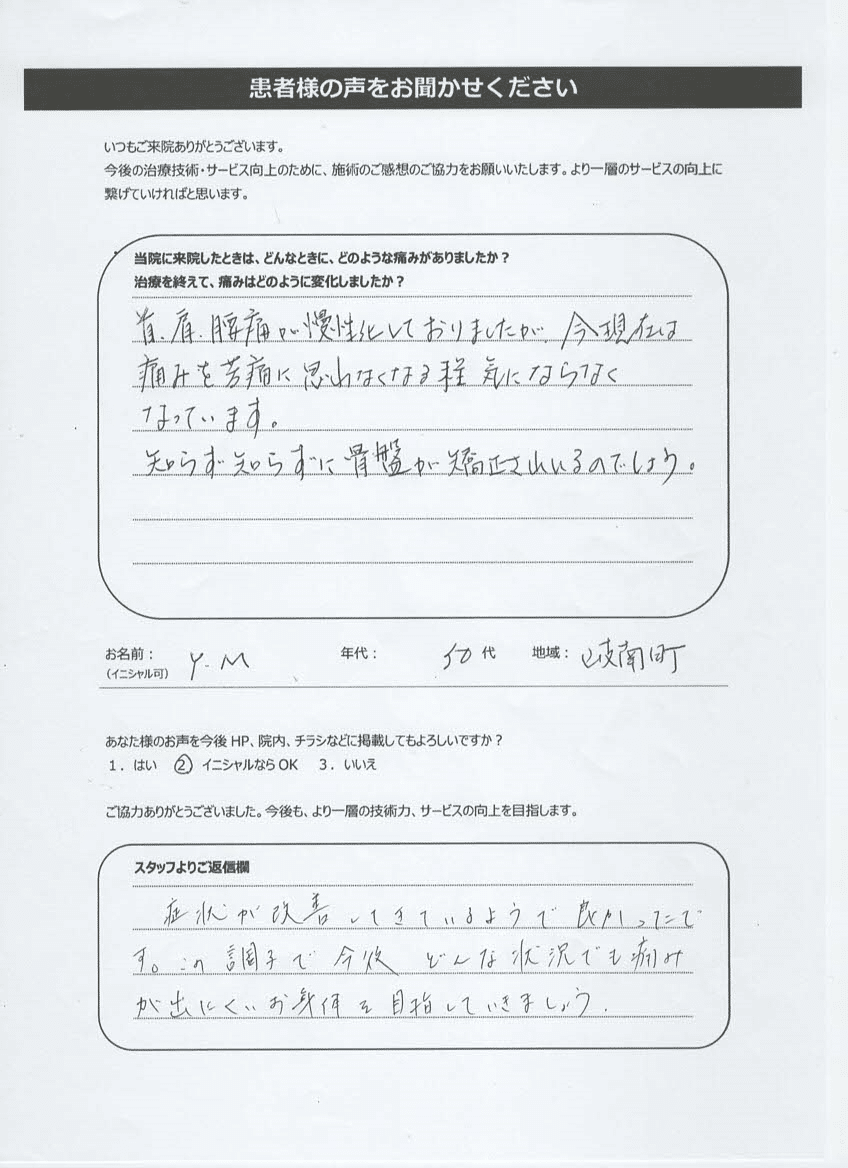 患者様の声をお聞かせください
いつもご来院ありがとうございます。
今後の治療技術・サービス向上のために、施術のご感想のご協力をお願いいたします。より一層のサービスの向上に
繋げていければと思います。
当院に来院したときは、どんなときに、どのような痛みがありましたか？
治療を終えて、痛みはどのように変化しましたか？
首、肩、腰痛が慢性化しておりましたが、今現在は
痛みを苦痛に思わなくなる程 気にならなく
なっています。
知らず知らずに骨盤が矯正されいるのでしょう。
お名前： Y.M 年代： 50代 地域： 岐南町
（イニシャル可）
あなた様のお声を今後 HP、院内、チラシなどに掲載してもよろしいですか？
1．はい ② イニシャルなら OK 3．いいえ
ご協力ありがとうございました。今後も、より一層の技術力、サービスの向上を目指します。
スタッフよりご返信欄
症状が改善してきているようで良かったで
す。この調子で今後 どんな状況でも痛み
が出にくいお身体を目指していきましょう.